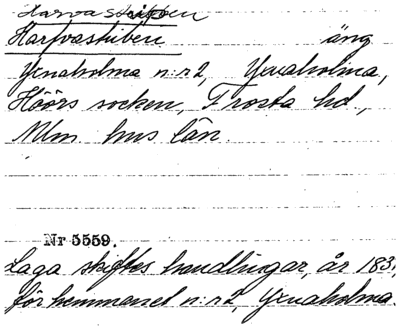 Harvastiben
Harfvastiben äng
Yxnaholma n:r 2, Yxnaholma,
Höörs socken, Frosta hd.,
Mlm. hus län.
Nr 5559.
Laga skiftes handlingar, år 183
för hemmanet n:r 2, Yxnaholma.